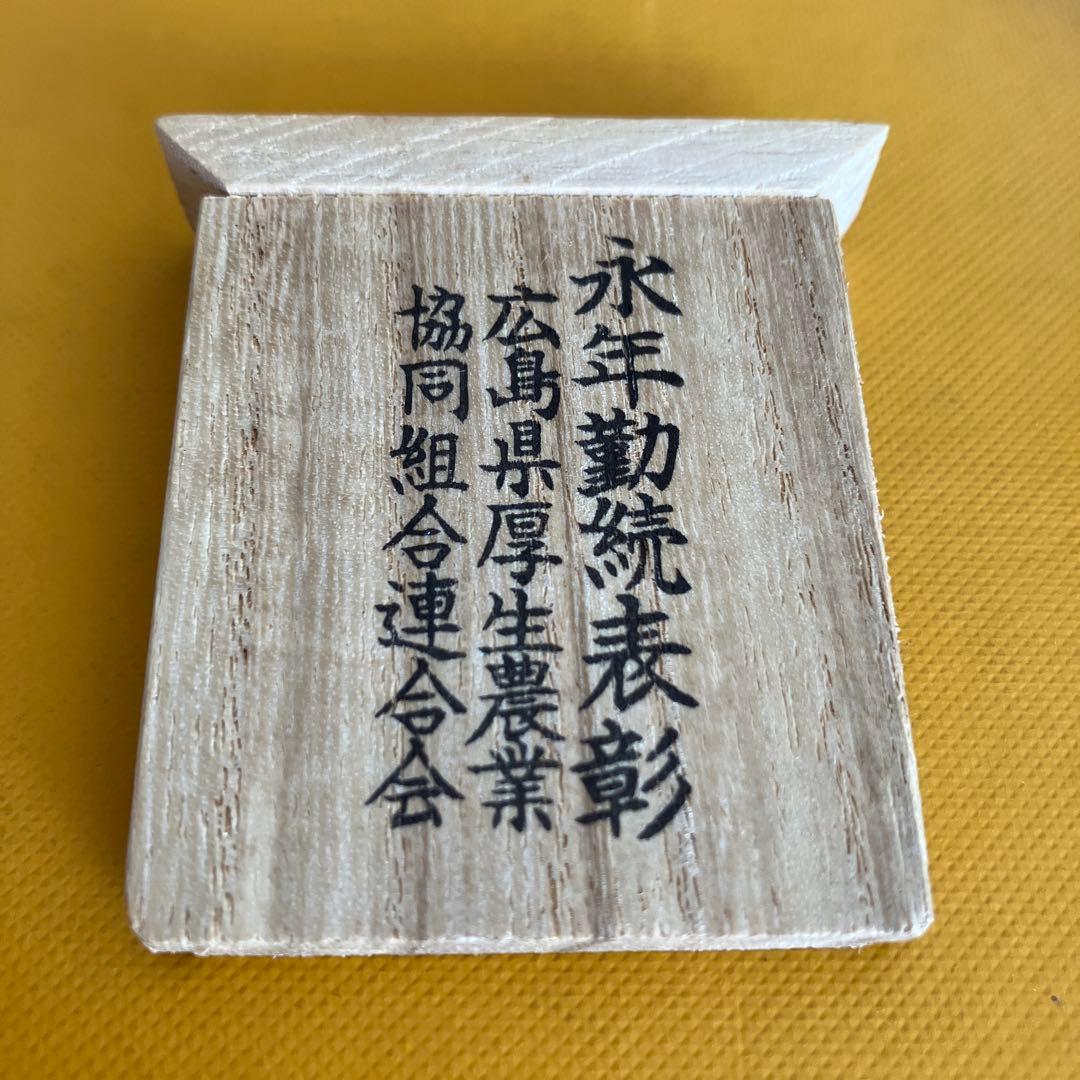 永年勤続表彰
広島県厚生農業
協同組合連合会